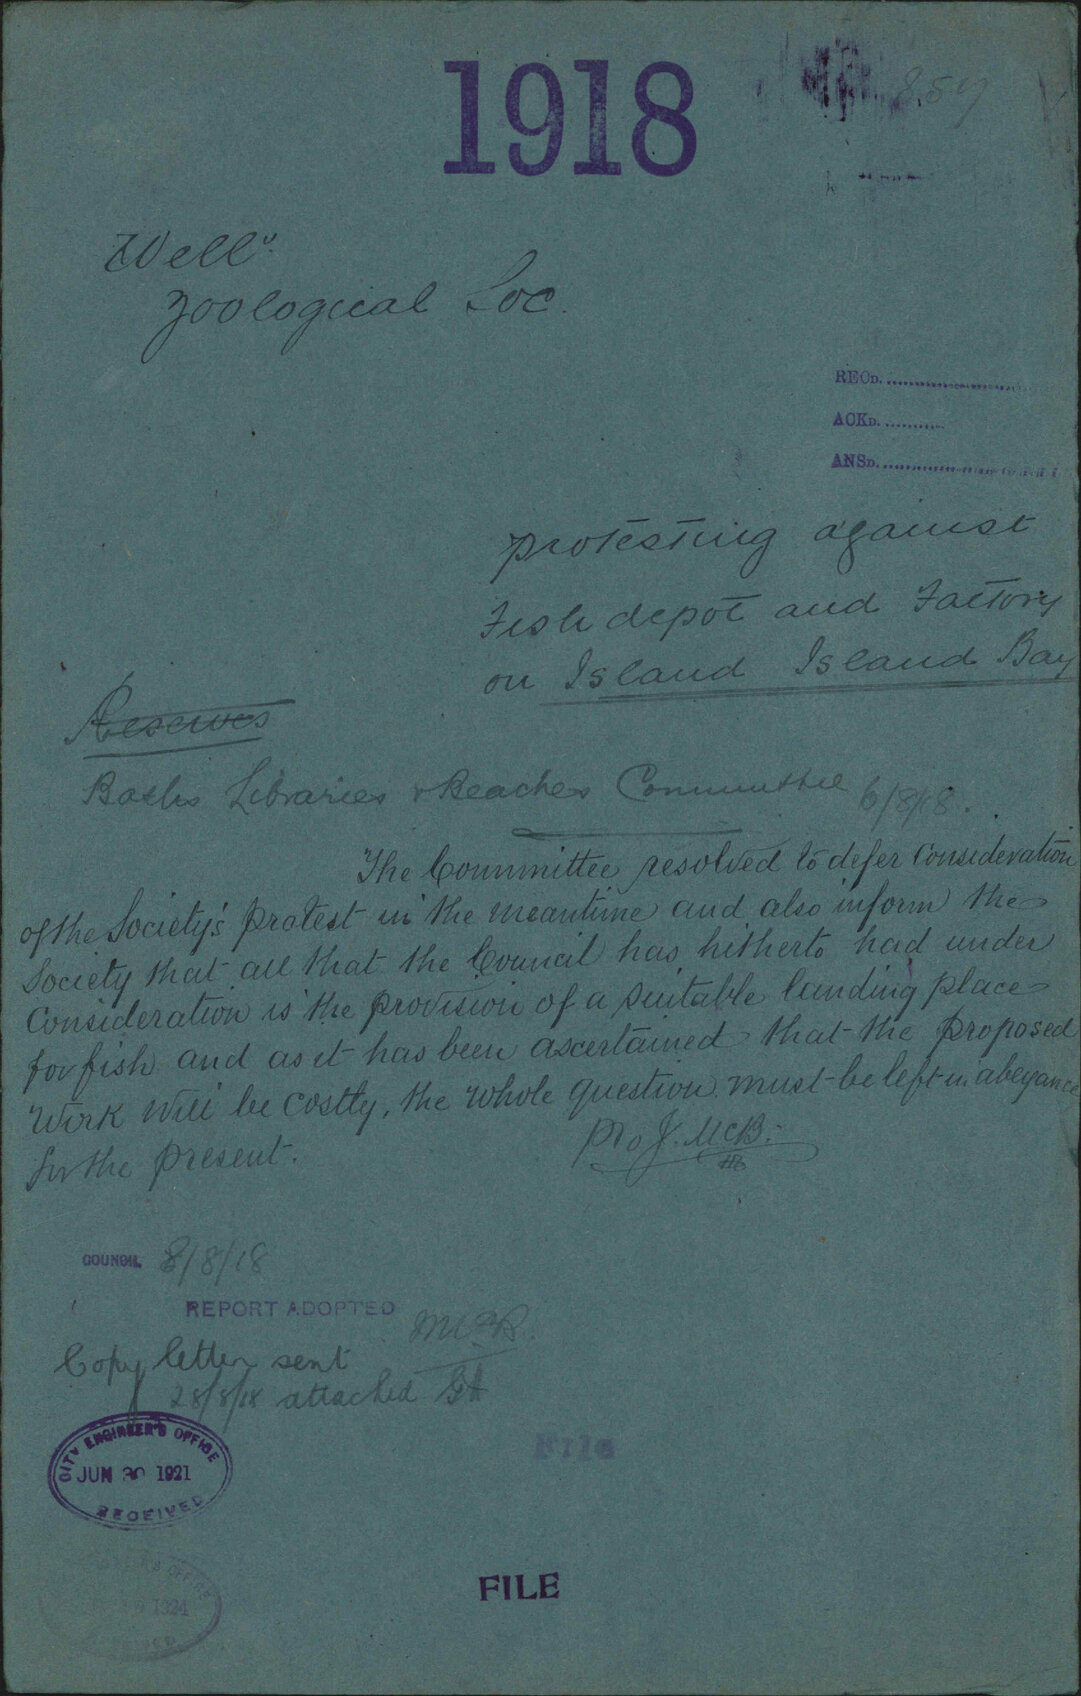 1918
Welln.
Zoological Soc.
RECD.
ACKD.
ANSD.
protesting against
Fish depot and Factory
on Island Island Bay
Reserves
Baths Libraries & Beaches Committee 6/8/18.
The Committee resolved to defer consideration
of the Society's protest in the meantime and also inform the
Society that all that the Council has hitherto had under
consideration is the provision of a suitable landing place
for fish and as it has been ascertained that the proposed
work will be costly, the whole question must be left in abeyance
for the present.
Pro J. McB.
COUNCIL 8/8/18
REPORT ADOPTED
Copy letter sent
28/8/18 attached
CITY ENGINEER'S OFFICE
JUN 30 1921
RECEIVED
File
OFFICE
1924
FILE